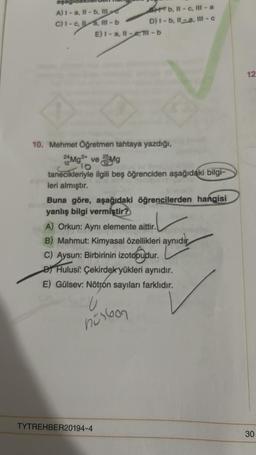 A) I - a, II - b, III - c
b, II - c, III - a
C) I - c, II - a, III - b
D) I - b, II - a, III - c
E) I - a, II - c, III - b
12
10. Mehmet Öğretmen tahtaya yazdığı,
²⁴₁₂Mg²⁺ ve Mg
10
tanecikleriyle ilgili beş öğrenciden aşağıdaki bilgi-
leri almıştır.
Buna göre, aşağıdaki öğrencilerden hangisi
yanlış bilgi vermiştir?
A) Orkun: Aynı elemente aittir.
B) Mahmut: Kimyasal özellikleri aynıdır.
C) Aysun: Birbirinin izotopudur.
D) Hulusi: Çekirdek yükleri aynıdır.
E) Gülsev: Nötron sayıları farklıdır.
TYTREHBER20194-4
30